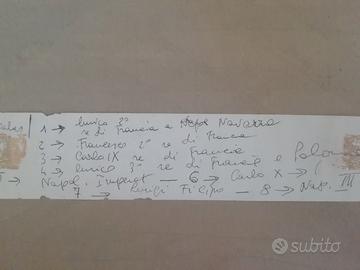 1 → Enrico 2° re di Francia e Navarra
2 → Francesco 2° re di Francia
3 → Carlo IX re di Francia
4 → Enrico 3° re di Francia e Polon
Napol. Imperat — 6 → Carlo X →
7 → Luigi Filipo — 8 → Nap. III
subito